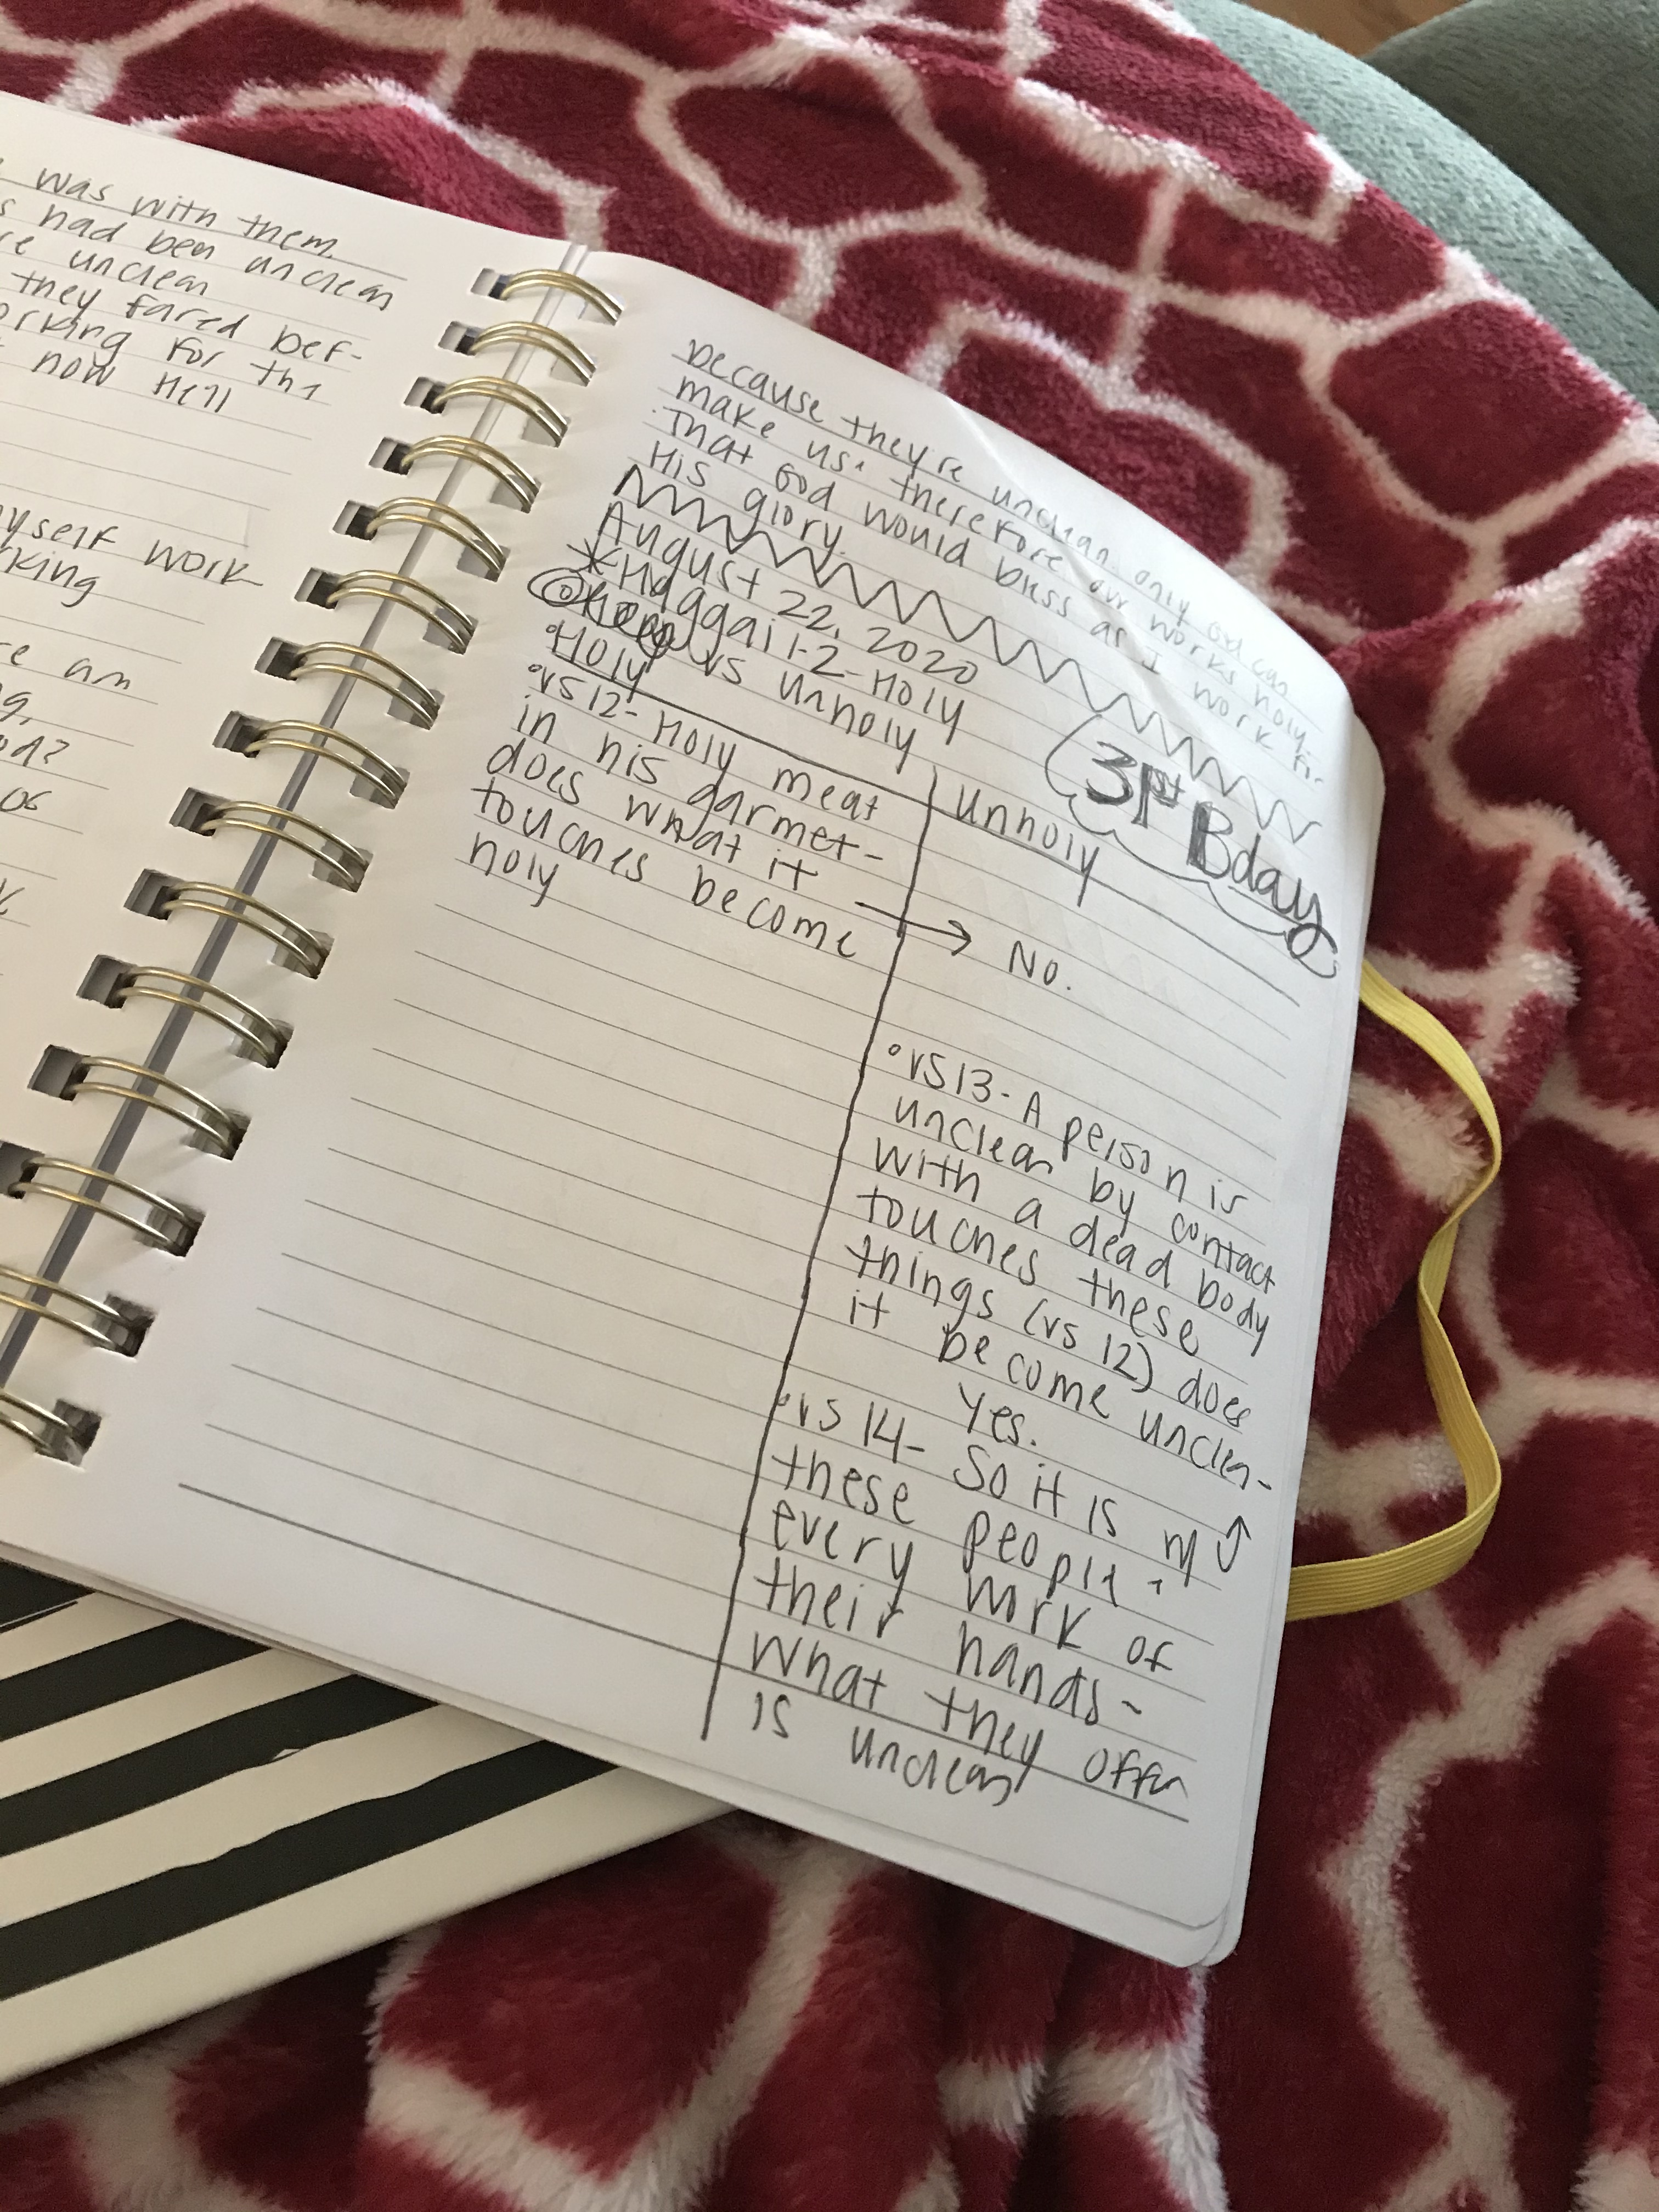 was with them.
had been unclean
unclean
they fared bef-
orking for the
now He'll
myself work
king
are am
of
because they're unclean. only God can
make us. therefore our works holy.
That God would bless as I work for
His glory.
August 22, 2020
*Haggai 1-2-Holy
vs unholy
31st Bday
°Holy
Unholy
°vs 12- Holy meat
in his garmet-
does what it
touches become
holy
→ No.
°vs 13- A person is
unclean by contact
with a dead body
touches these
things (vs 12) does
it become unclean-
Yes.
°vs 14- So it is w/
these people,
every work of
their hands-
what they offer
is unclean